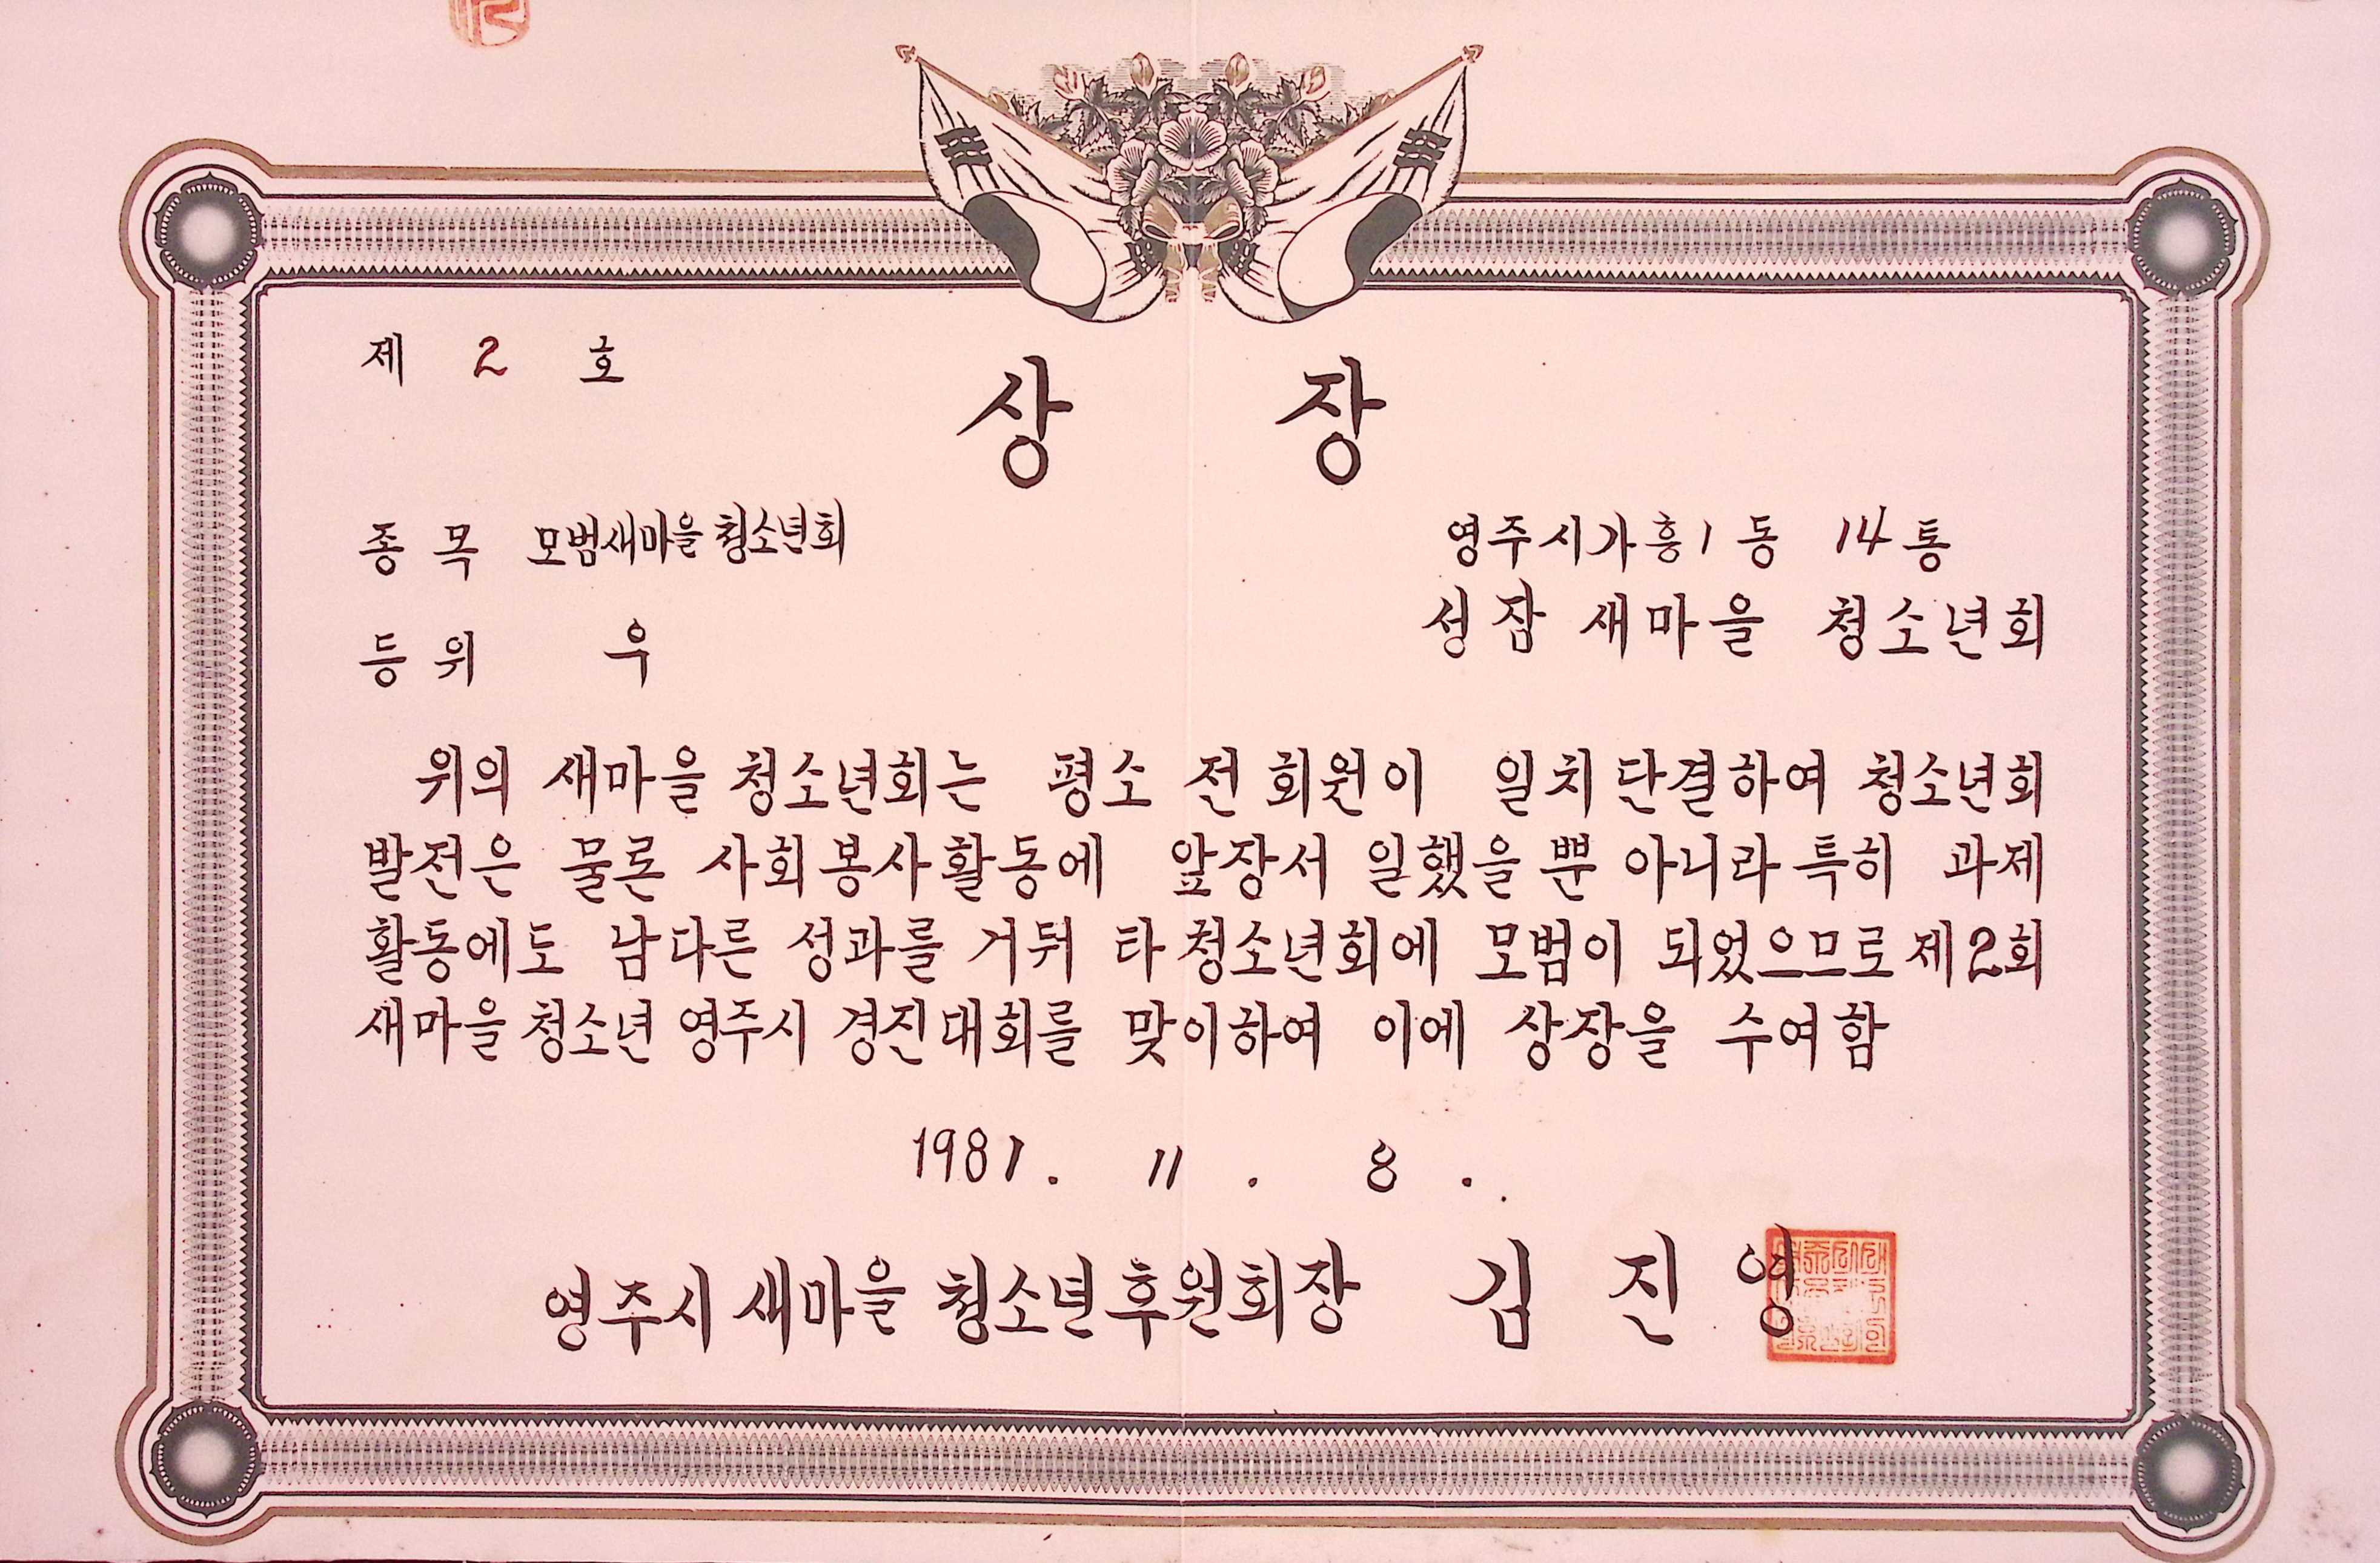 제 2 호
상 장
종 목 모범새마을 청소년회
영주시가흥1동 14통
등 위 우
성잠 새마을 청소년회
위의 새마을 청소년회는 평소 전 회원이 일치 단결하여 청소년회
발전은 물론 사회봉사활동에 앞장서 일했을 뿐 아니라 특히 과제
활동에도 남다른 성과를 거둬 타 청소년회에 모범이 되었으므로 제2회
새마을 청소년 영주시 경진대회를 맞이하여 이에 상장을 수여함
1981. 11. 8.
영주시 새마을 청소년후원회장 김 진 영